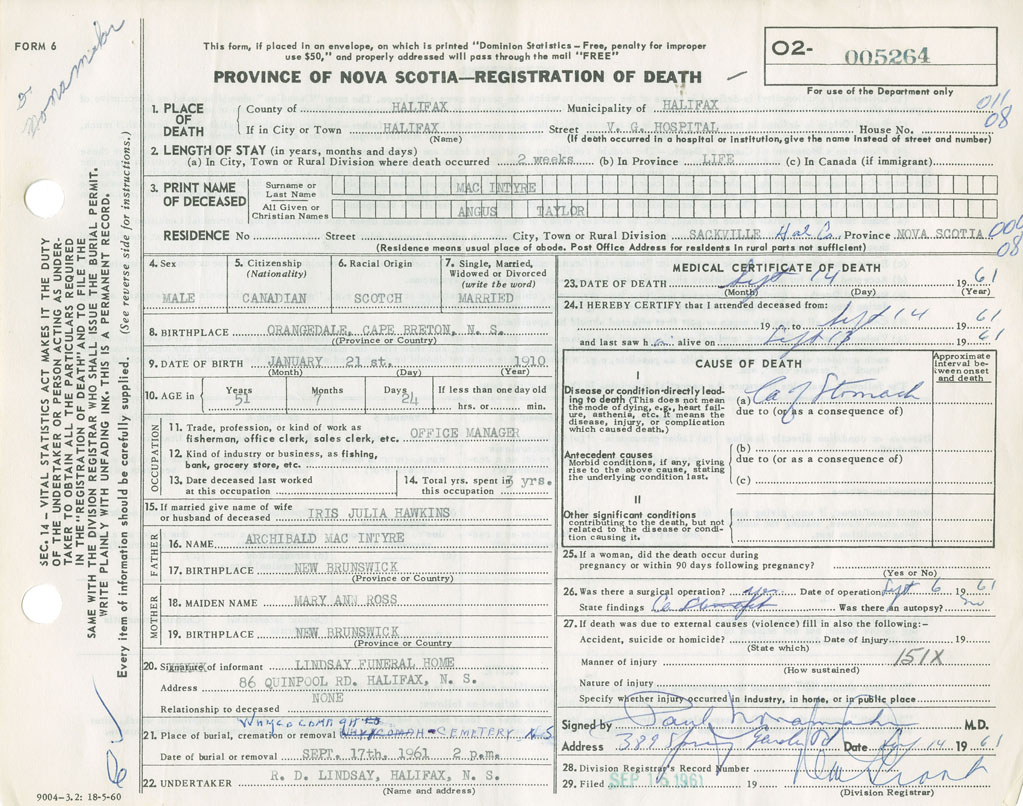 FORM 6
This form, if placed in an envelope, on which is printed "Dominion Statistics – Free, penalty for improper
use $50," and properly addressed will pass through the mail "FREE"
PROVINCE OF NOVA SCOTIA—REGISTRATION OF DEATH
O2- 005264
For use of the Department only
011
08
1. PLACE OF DEATH
County of HALIFAX Municipality of HALIFAX
If in City or Town HALIFAX Street V. G. HOSPITAL House No.
(Name) (If death occurred in a hospital or institution, give the name instead of street and number)
2. LENGTH OF STAY (in years, months and days)
(a) In City, Town or Rural Division where death occurred 2 weeks (b) In Province LIFE (c) In Canada (if immigrant)
3. PRINT NAME OF DECEASED
Surname or Last Name MAC INTYRE
All Given or Christian Names ANGUS TAYLOR
RESIDENCE No Street City, Town or Rural Division SACKVILLE Hal Co., Province NOVA SCOTIA
08
(Residence means usual place of abode. Post Office Address for residents in rural parts not sufficient)
4. Sex MALE
5. Citizenship (Nationality) CANADIAN
6. Racial Origin SCOTCH
7. Single, Married, Widowed or Divorced (write the word) MARRIED
8. BIRTHPLACE ORANGEDALE, CAPE BRETON, N. S.
(Province or Country)
9. DATE OF BIRTH JANUARY 21 st. 1910
(Month) (Day) (Year)
10. AGE in Years 51 Months 7 Days 24 If less than one day old
hrs. or min.
OCCUPATION
11. Trade, profession, or kind of work as
fisherman, office clerk, sales clerk, etc. OFFICE MANAGER
12. Kind of industry or business, as fishing,
bank, grocery store, etc.
13. Date deceased last worked
at this occupation
14. Total yrs. spent in
this occupation yrs.
15. If married give name of wife
or husband of deceased IRIS JULIA HAWKINS
FATHER
16. NAME ARCHIBALD MAC INTYRE
17. BIRTHPLACE NEW BRUNSWICK
(Province or Country)
MOTHER
18. MAIDEN NAME MARY ANN ROSS
19. BIRTHPLACE NEW BRUNSWICK
(Province or Country)
20. Signature of informant LINDSAY FUNERAL HOME
Address 86 QUINPOOL RD. HALIFAX, N. S.
NONE
Relationship to deceased
21. Place of burial, cremation or removal CEMETERY N.S.
Date of burial or removal SEPT. 17th, 1961 2 p.m.
22. UNDERTAKER R. D. LINDSAY, HALIFAX, N. S.
(Name and address)
9004-3.2: 18-5-60
MEDICAL CERTIFICATE OF DEATH
23. DATE OF DEATH Sept 14 1961
(Month) (Day) (Year)
24. I HEREBY CERTIFY that I attended deceased from:
19 to Sept 14 1961
and last saw h alive on Sept 13 1961
CAUSE OF DEATH
Approximate interval between onset and death
I
Disease or condition directly leading to death (This does not mean the mode of dying, e.g., heart failure, asthenia, etc. It means the disease, injury, or complication which caused death.)
(a) Ca of Stomach
due to (or as a consequence of)
Antecedent causes
Morbid conditions, if any, giving rise to the above cause, stating the underlying condition last.
(b)
due to (or as a consequence of)
(c)
II
Other significant conditions
contributing to the death, but not related to the disease or condition causing it.
25. If a woman, did the death occur during
pregnancy or within 90 days following pregnancy?
(Yes or No)
26. Was there a surgical operation? yes Date of operation Sept 6 1961
State findings Ca Stomach Was there an autopsy? no
27. If death was due to external causes (violence) fill in also the following:–
Accident, suicide or homicide? Date of injury 19
(State which)
151X
Manner of injury
(How sustained)
Nature of injury
Specify whether injury occurred in industry, in home, or in public place
Signed by Paul M.D.
Address 389 Spring Garden Rd Date Sept 14 1961
28. Division Registrar's Record Number
29. Filed SEP 15 1961 19
(Division Registrar)
SEC. 14 – VITAL STATISTICS ACT MAKES IT THE DUTY
OF THE UNDERTAKER OR PERSON ACTING AS UNDER-
TAKER TO OBTAIN ALL THE PARTICULARS REQUIRED
IN THE "REGISTRATION OF DEATH" AND TO FILE THE
SAME WITH THE DIVISION REGISTRAR WHO SHALL ISSUE THE BURIAL PERMIT.
WRITE PLAINLY WITH UNFADING INK. THIS IS A PERMANENT RECORD.
Every item of information should be carefully supplied. (See reverse side for instructions.)